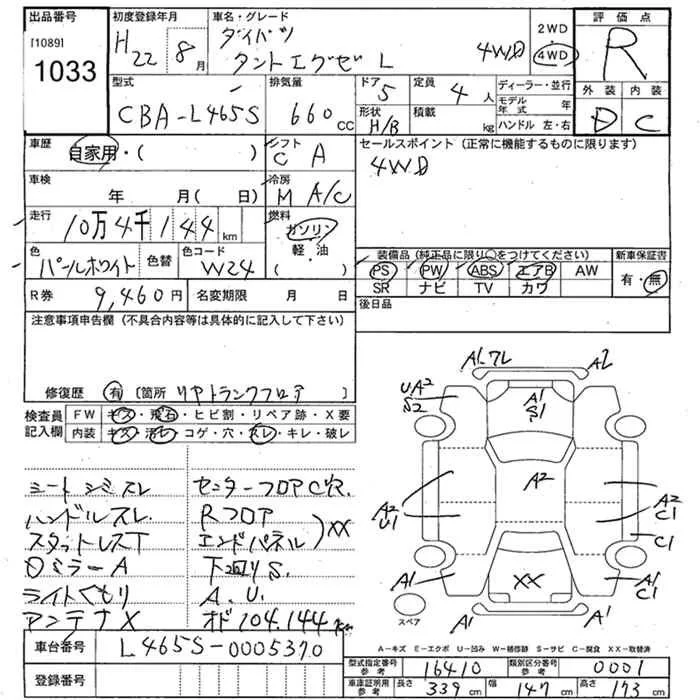 出品番号
[1089]
1033
初度登録年月
H22 8月
車名・グレード
ダイハツ
タントエグゼ L 4WD
2WD
4WD
評価点
R
外装 内装
D C
型式
CBA-L465S
排気量
660 CC
ドア
5
形状
H/B
定員
4人
積載
kg
ディーラー・並行
モデル年式 年
ハンドル 左・右
車歴
自家用・( )
シフト
C A
車検
年 月( 日)
冷房
M A/C
走行
10万4千144 km
燃料
ガソリン
軽・油
( )
色
パールホワイト
色替
色コード
W24
セールスポイント(正常に機能するものに限ります)
4WD
装備品(純正品に限り○をつけてください)
新車保証書
PS PW ABS エアB AW
SR ナビ TV カワ
有・無
後日品
R券 9,460円 名変期限 月 日
注意事項申告欄(不具合内容等は具体的に記入して下さい)
修復歴 有 [箇所 リヤトランクフロア ]
検査員記入欄
FW キズ・飛石・ヒビ割・リペア跡・X要
内装 キズ・汚レ・コゲ・穴・スレ・キレ・破レ
シートシミスレ
ハンドルスレ
スタットレスT
ライトくもり
アンテナX
Rフロア
エンドパネル
XX
下回りS.
A.U.
オド104.144km
A1
A2
UA2
S2
A1
S1
A2
A2
U1
A2
C1
C1
A1
A1
C1
XX
A1
A1
スペア
A-キズ E-エクボ U-凹み W-補修跡 S-サビ C-腐食 XX-取替済
車台番号 L465S-0005370
登録番号
型式指定番号 参考 16410 類別区分番号 参考 0001
車庫証明用 参考 長さ 339 cm 幅 147 cm 高さ 173 cm